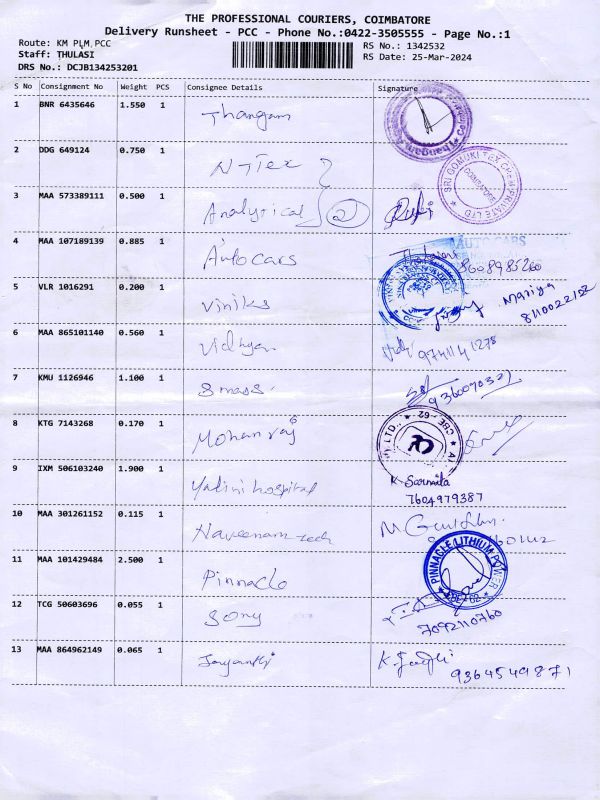 THE PROFESSIONAL COURIERS, COIMBATORE
Delivery Runsheet - PCC - Phone No.:0422-3505555 - Page No.:1
Route: KM PLM,PCC
Staff: THULASI
DRS No.: DCJB134253201
RS No.: 1342532
RS Date: 25-Mar-2024
S No Consignment No Weight PCS Consignee Details Signature
1 BNR 6435646 1.550 1 Thangam
2 DDG 649124 0.750 1 N-Tex
SRI GOMUKI TEX CHEM PRIVATE LTD
COIMBATORE
3 MAA 573389111 0.500 1 Analytical 2
4 MAA 107189139 0.885 1 Auto cars
AUTO CARS
9608985260
5 VLR 1016291 0.200 1 Viniks
Mariya
8110022152
6 MAA 865101140 0.560 1 Vidhya
7 KMU 1126946 1.100 1 Smass
8 KTG 7143268 0.170 1 Mohanraj
CBE -62-
9 IXM 506103240 1.900 1 Yalini hospital
K. Sarmila
7604979387
10 MAA 301261152 0.115 1 Naveenam tech
11 MAA 101429484 2.500 1 Pinnacle
PINNACLE LITHIUM POWER
12 TCG 50603696 0.055 1 Sony
7092110760
13 MAA 864962149 0.065 1 Jayanthi
9364549871